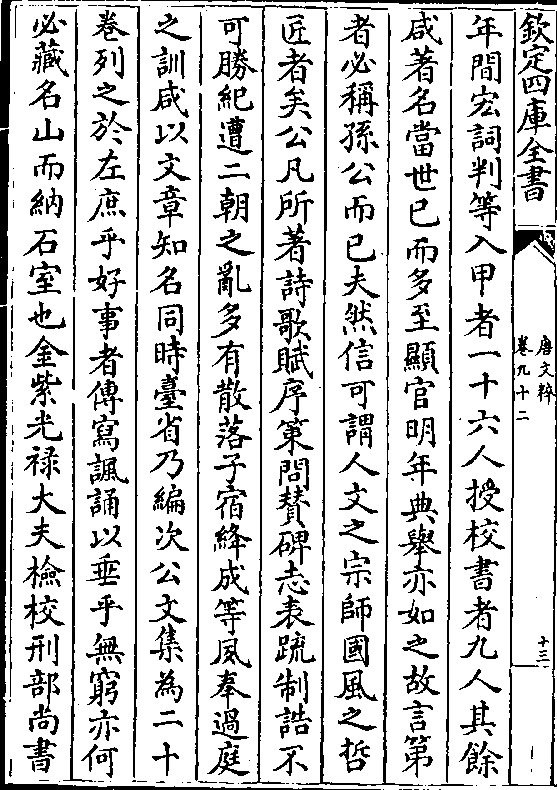 欽定四庫全書
唐文粹
卷九十二
十三
年間宏詞判等入甲者一十六人授校書者九人其餘
咸著名當世已而多至顯官明年典舉亦如之故言第
者必稱孫公而已夫然信可謂人文之宗師國風之哲
匠者矣公凡所著詩歌賦序策問贊碑志表疏制誥不
可勝紀遭二朝之亂多有散落子宿絳成等夙奉過庭
之訓咸以文章知名同時臺省乃編次公文集為二十
卷列之於左庶乎好事者傳寫諷誦以垂乎無窮亦何
必藏名山而納石室也金紫光禄大夫檢校刑部尚書